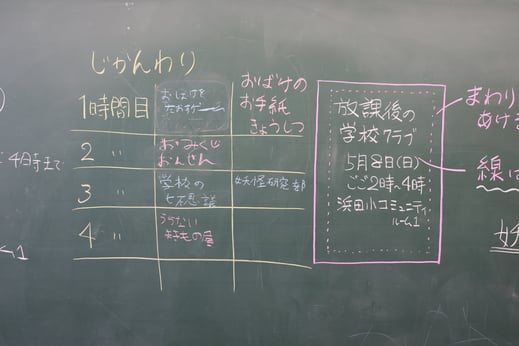 じかんわり
1時間目
おばけを
たおすゲーム
おばけの
お手紙
きょうしつ
2 〃
おみくじ
おんせん
3 〃
学校の
七不思議
妖怪研究部
4 〃
うらない
放課後の
学校クラブ
5月8日(日)
ごご2時〜4時
浜田小コミュニティ
ルーム1
まわり
あける
線は
4時まで
ム1